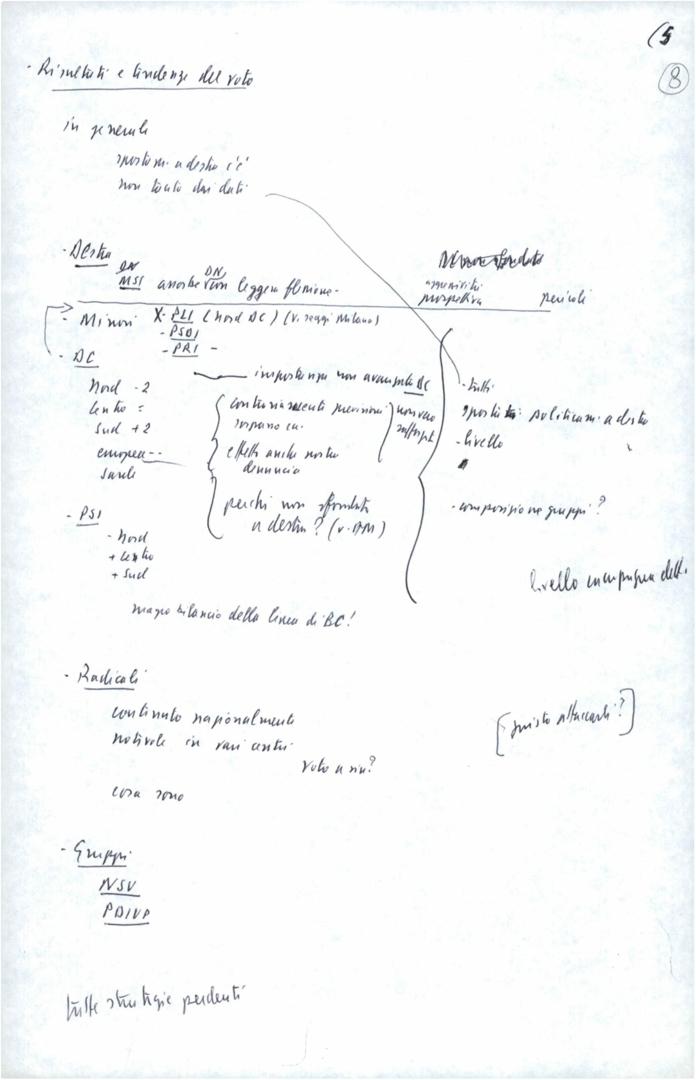 (5
8
- Risultati e tendenze del voto
in generale
spostam. a destra c'è
non tanto dai dati
- Destra
DN
MSI anche con leggera flessione -
DN
prospettiva
pericoli
- Minori X - PLI (Nord DC) (v. seggi Milano)
- PSDI
- PRI -
- DC
importanza non avanzata DC
Nord - 2
Centro =
Sud + 2
europee --
Sarde
contrariamente previsioni
non vero
effetto anche nostra
denuncia
perchè non sfondato
a destra? (v.
- tutti
spostati politicam. a destra
- livello
- composizione gruppi?
- PSI
- Nord
+ Centro
+ Sud
livello campagna elett.
magro bilancio della linea di BC!
- Radicali
contenuto nazionalmente
notevole in vari centri
voto a noi?
cosa sono
[giusto attaccarli?]
- Gruppi
NSU
PDIUP
tutte strategie perdenti